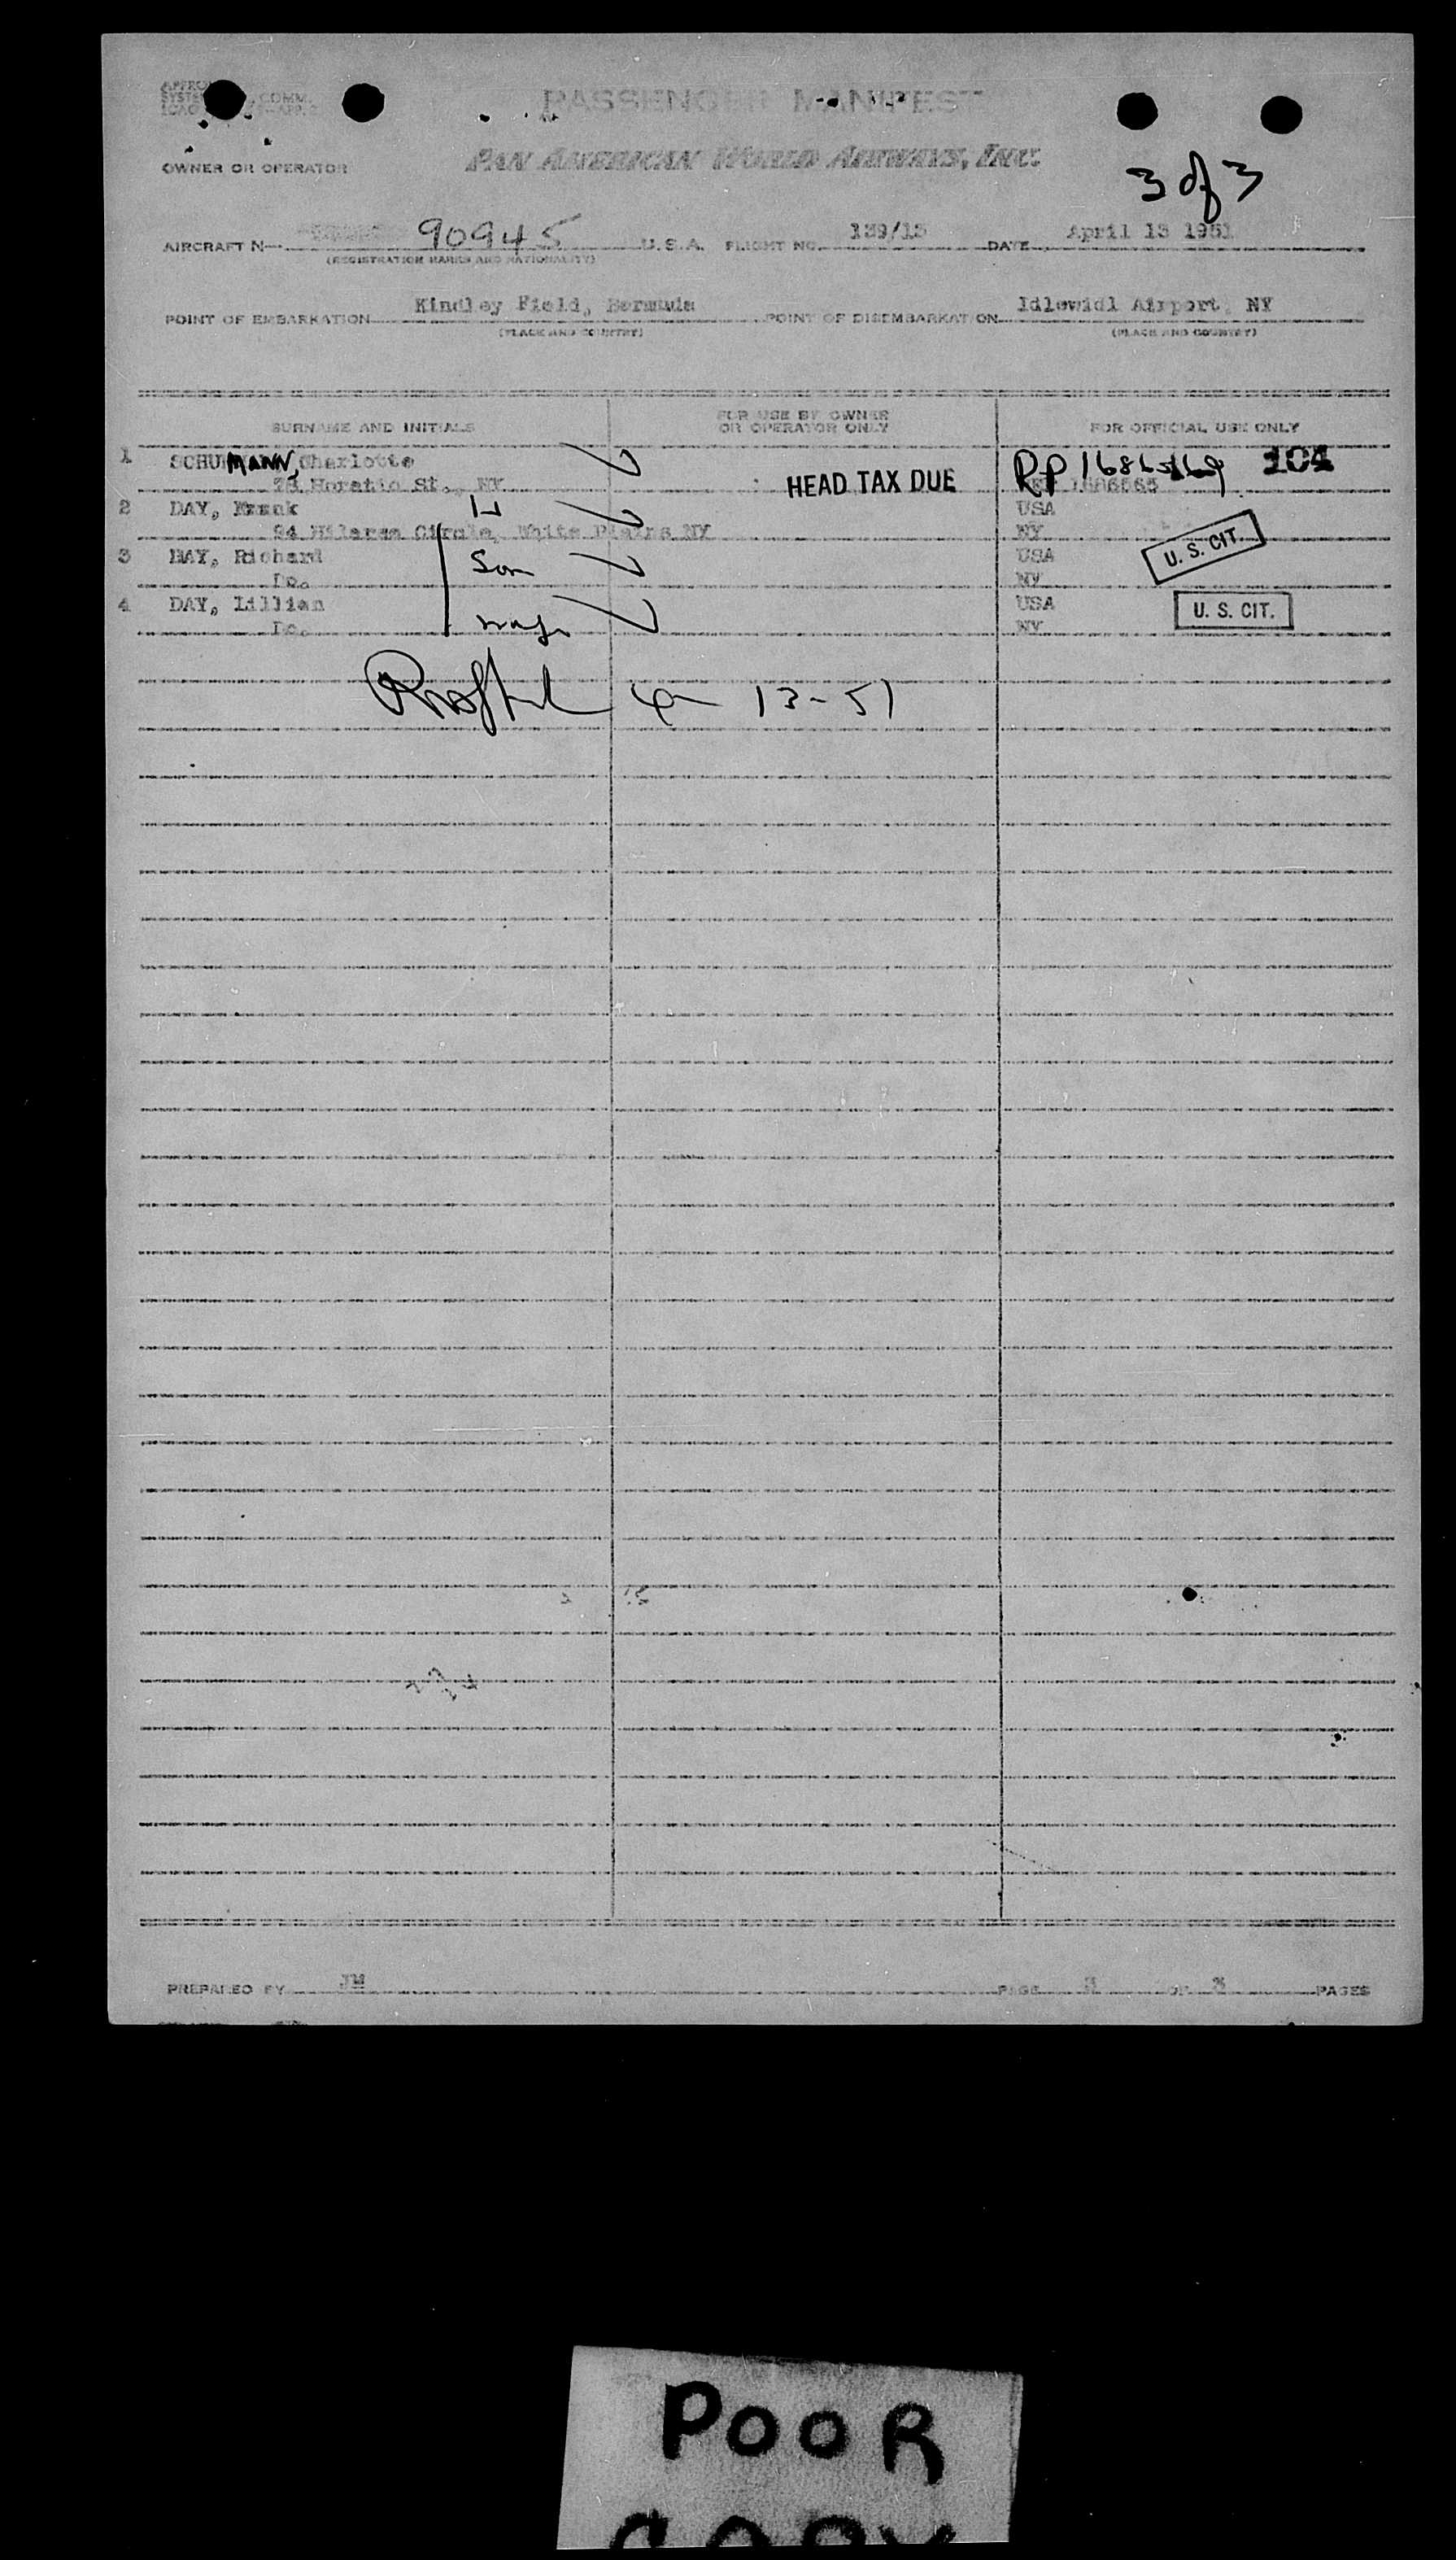 PASSENGER MANIFEST
OWNER OR OPERATOR
PAN AMERICAN WORLD AIRWAYS, INC.
3 of 3
AIRCRAFT N— 90945 U. S. A. FLIGHT NO. 139/13 DATE April 13 1951
(REGISTRATION MARKS AND NATIONALITY)
POINT OF EMBARKATION Kindley Field, Bermuda POINT OF DISEMBARKATION Idlewidl Airport, NY
(PLACE AND COUNTRY) (PLACE AND COUNTRY)
SURNAME AND INITIALS FOR USE BY OWNER OR OPERATOR ONLY FOR OFFICIAL USE ONLY
1 SCHUMANN, Charlotte RP 104
Horatio St., NY HEAD TAX DUE
2 DAY, Frank H USA
94 Circle, White Plains NY NY U. S. CIT.
3 DAY, Richard Son USA
Do. NY
4 DAY, Lillian USA U. S. CIT.
Do. NY
4-13-51
PREPARED BY JM PAGE 3 OF 3 PAGES
POOR
COPY